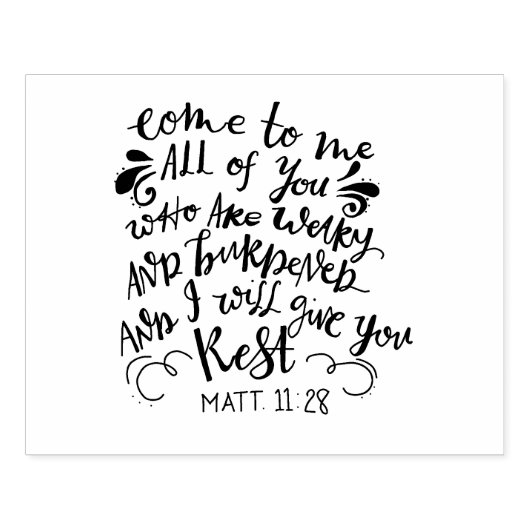 Come to me
ALL of You
WHO ARE Weary
AND BURDENED
AND I will give You
Rest
MATT. 11:28